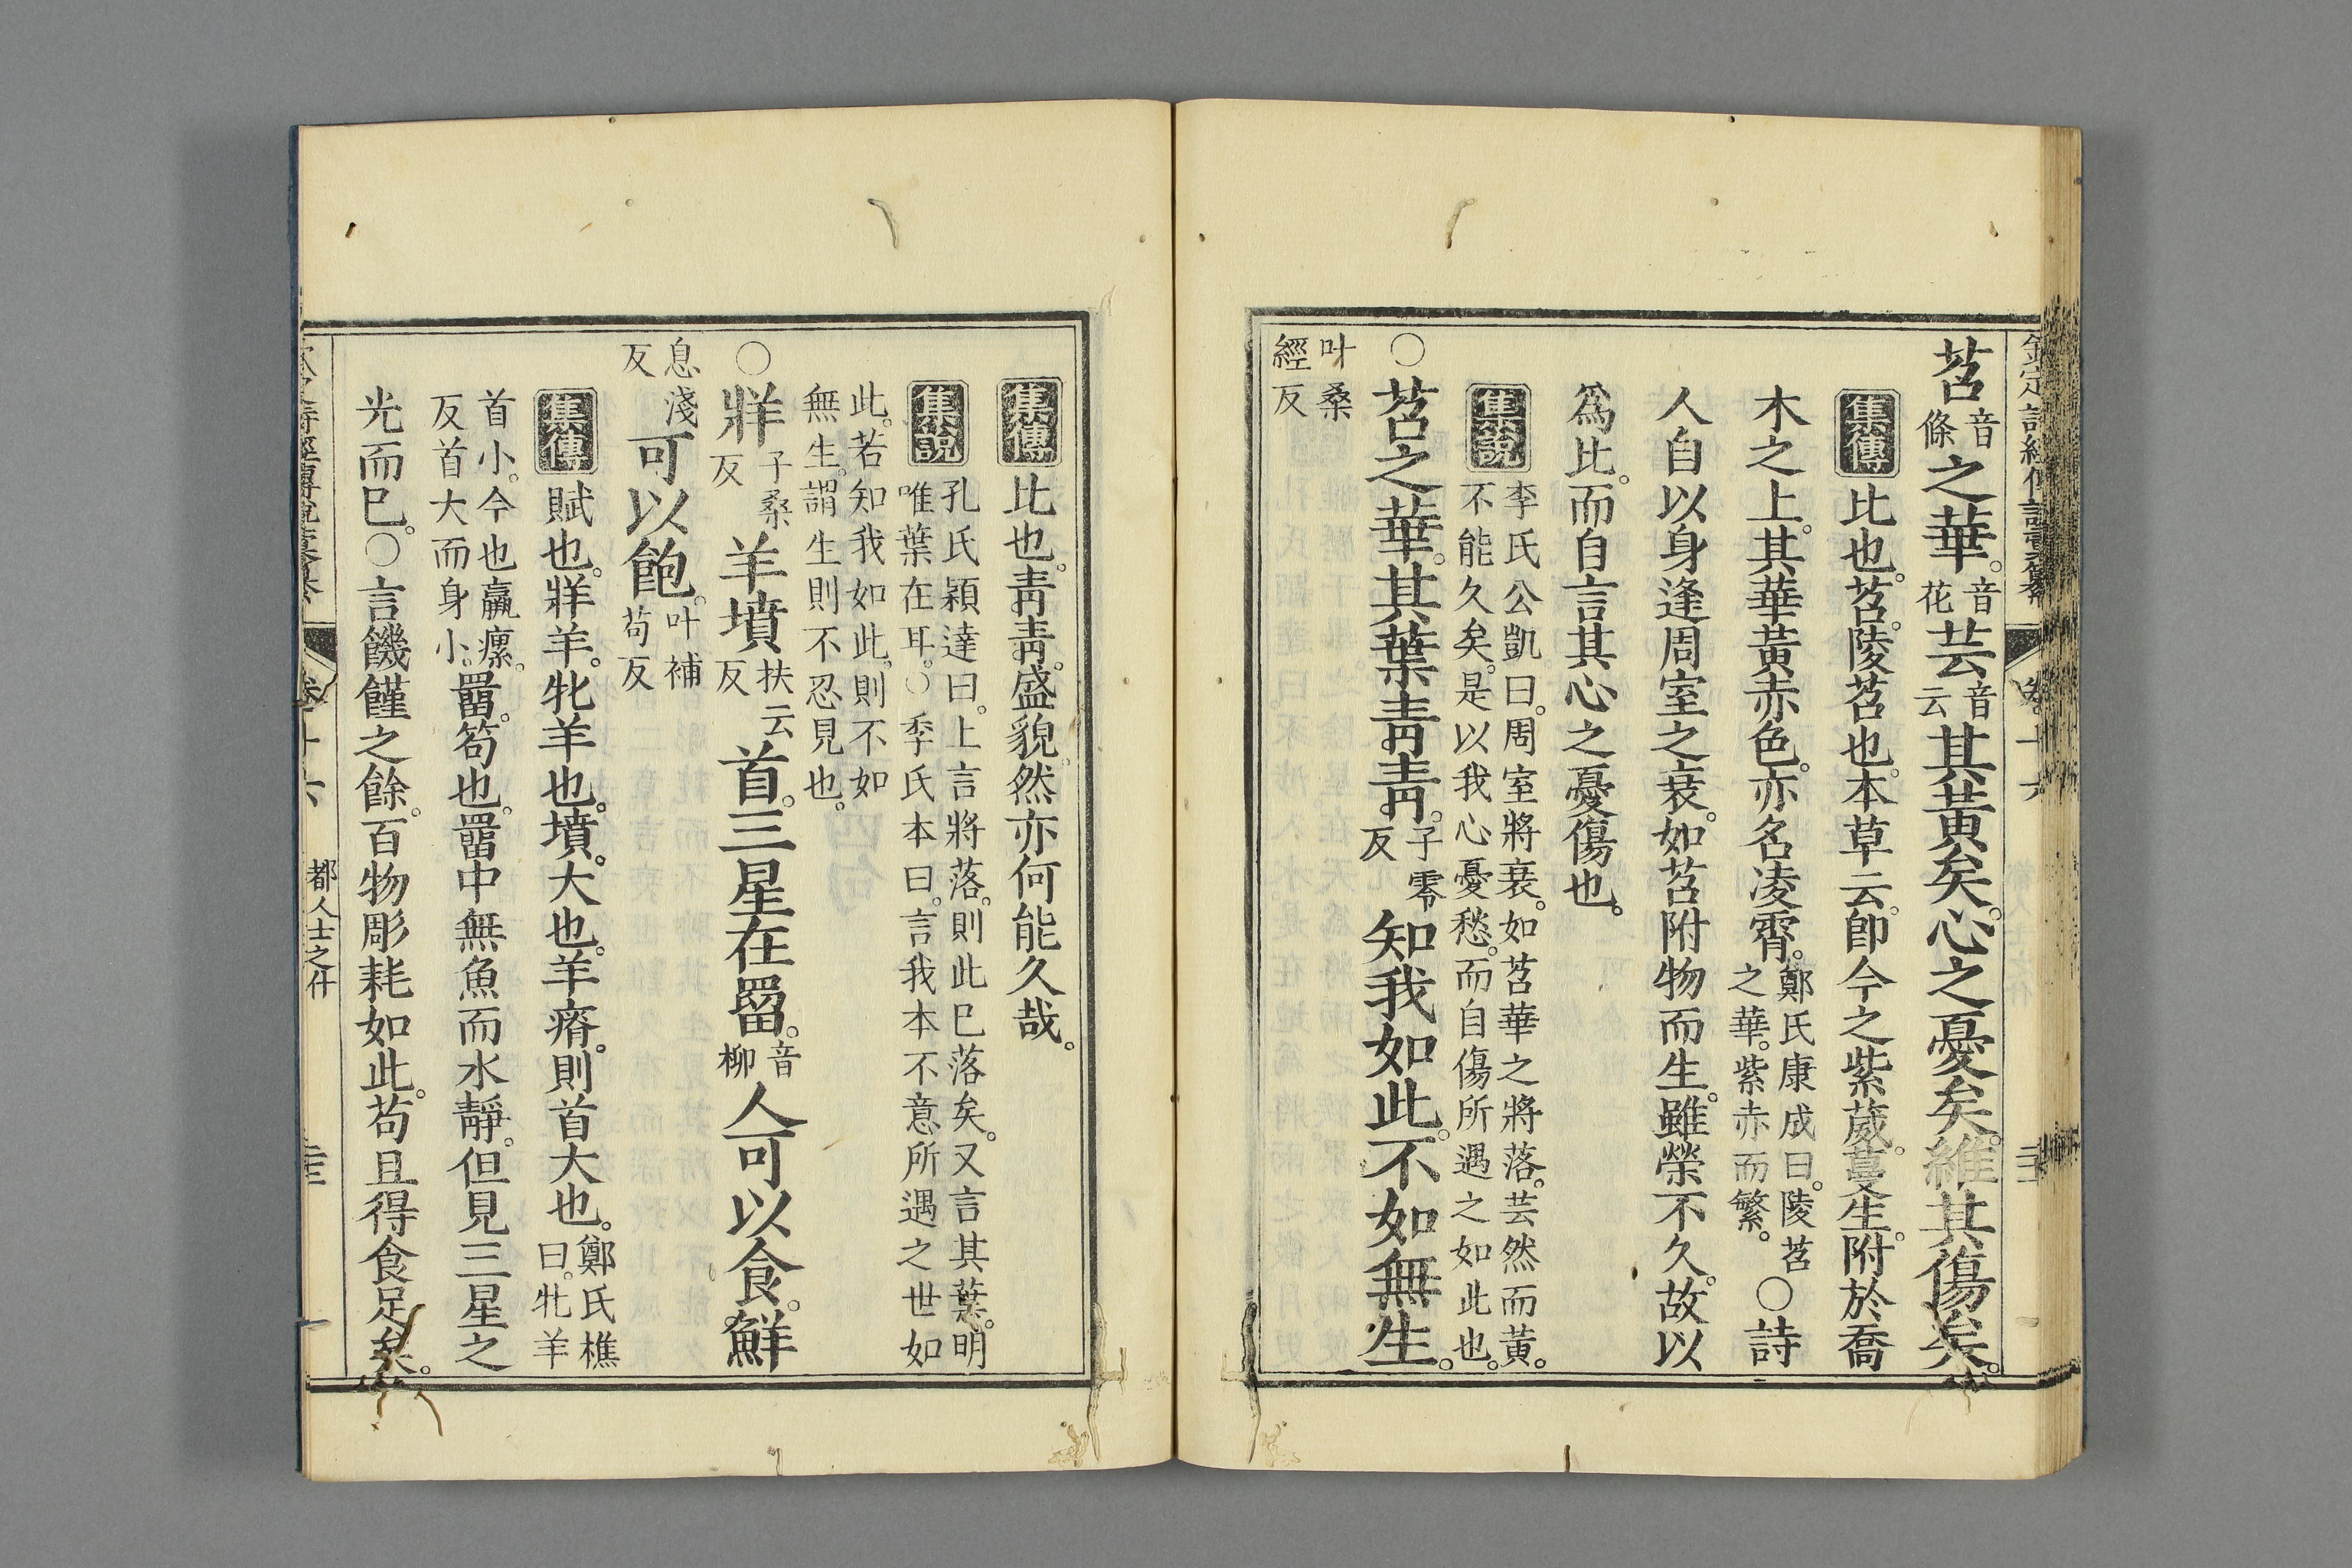 苕音條之華。音花芸音云其黃矣。心之憂矣。維其傷矣。
集傳 比也。苕。陵苕也。本草云。卽今之紫葳。蔓生。附於喬
木之上。其華黃赤色。亦名凌霄。鄭氏康成曰。陵苕之華。紫赤而繁。○詩
人自以身逢周室之衰。如苕附物而生。雖榮不久。故以
爲比。而自言其心之憂傷也。
集說 李氏公凱曰。周室將衰。如苕華之將落。芸然而黃。
不能久矣。是以我心憂愁。而自傷所遇之如此也。
○苕之華。其葉靑靑。子零反知我如此。不如無生。
叶桑經反
集傳 比也。靑靑。盛貌。然亦何能久哉。
集說 孔氏穎達曰。上言將落。則此已落矣。又言其葉。明
唯葉在耳。○季氏本曰。言我本不意所遇之世如
此。若知我如此。則不如
無生。謂生則不忍見也。
○牂子桑反羊墳扶云反首。三星在罶。音柳人可以食。鮮
息淺反可以飽。叶補苟反
集傳 賦也。牂羊。牝羊也。墳。大也。羊瘠。則首大也。鄭氏樵曰。牝羊
首小。今也羸瘰。反首大而身小。罶。笱也。罶中無魚而水靜。但見三星之
光而已。○言饑饉之餘。百物彫耗如此。苟且得食足矣。
都人士之什